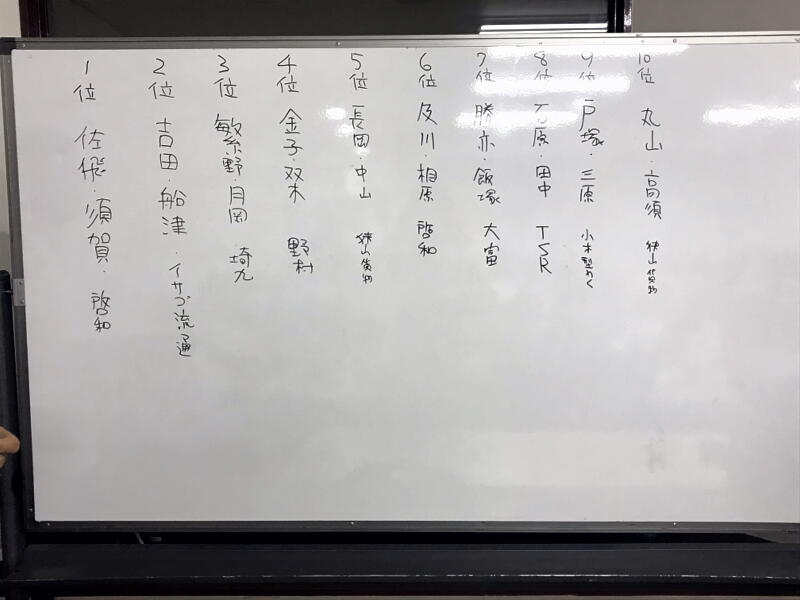 1位 佐飛・須賀・啓和
2位 吉田・船津・イサゴ流通
3位 繁野・月岡・埼九
4位 金子・双木 野村
5位 長岡・中山 狭山貨物
6位 及川・相原 啓和
7位 勝亦・飯塚 大富
8位 石原・田中 TSR
9位 戸塚・三原
10位 丸山・高須 狭山貨物